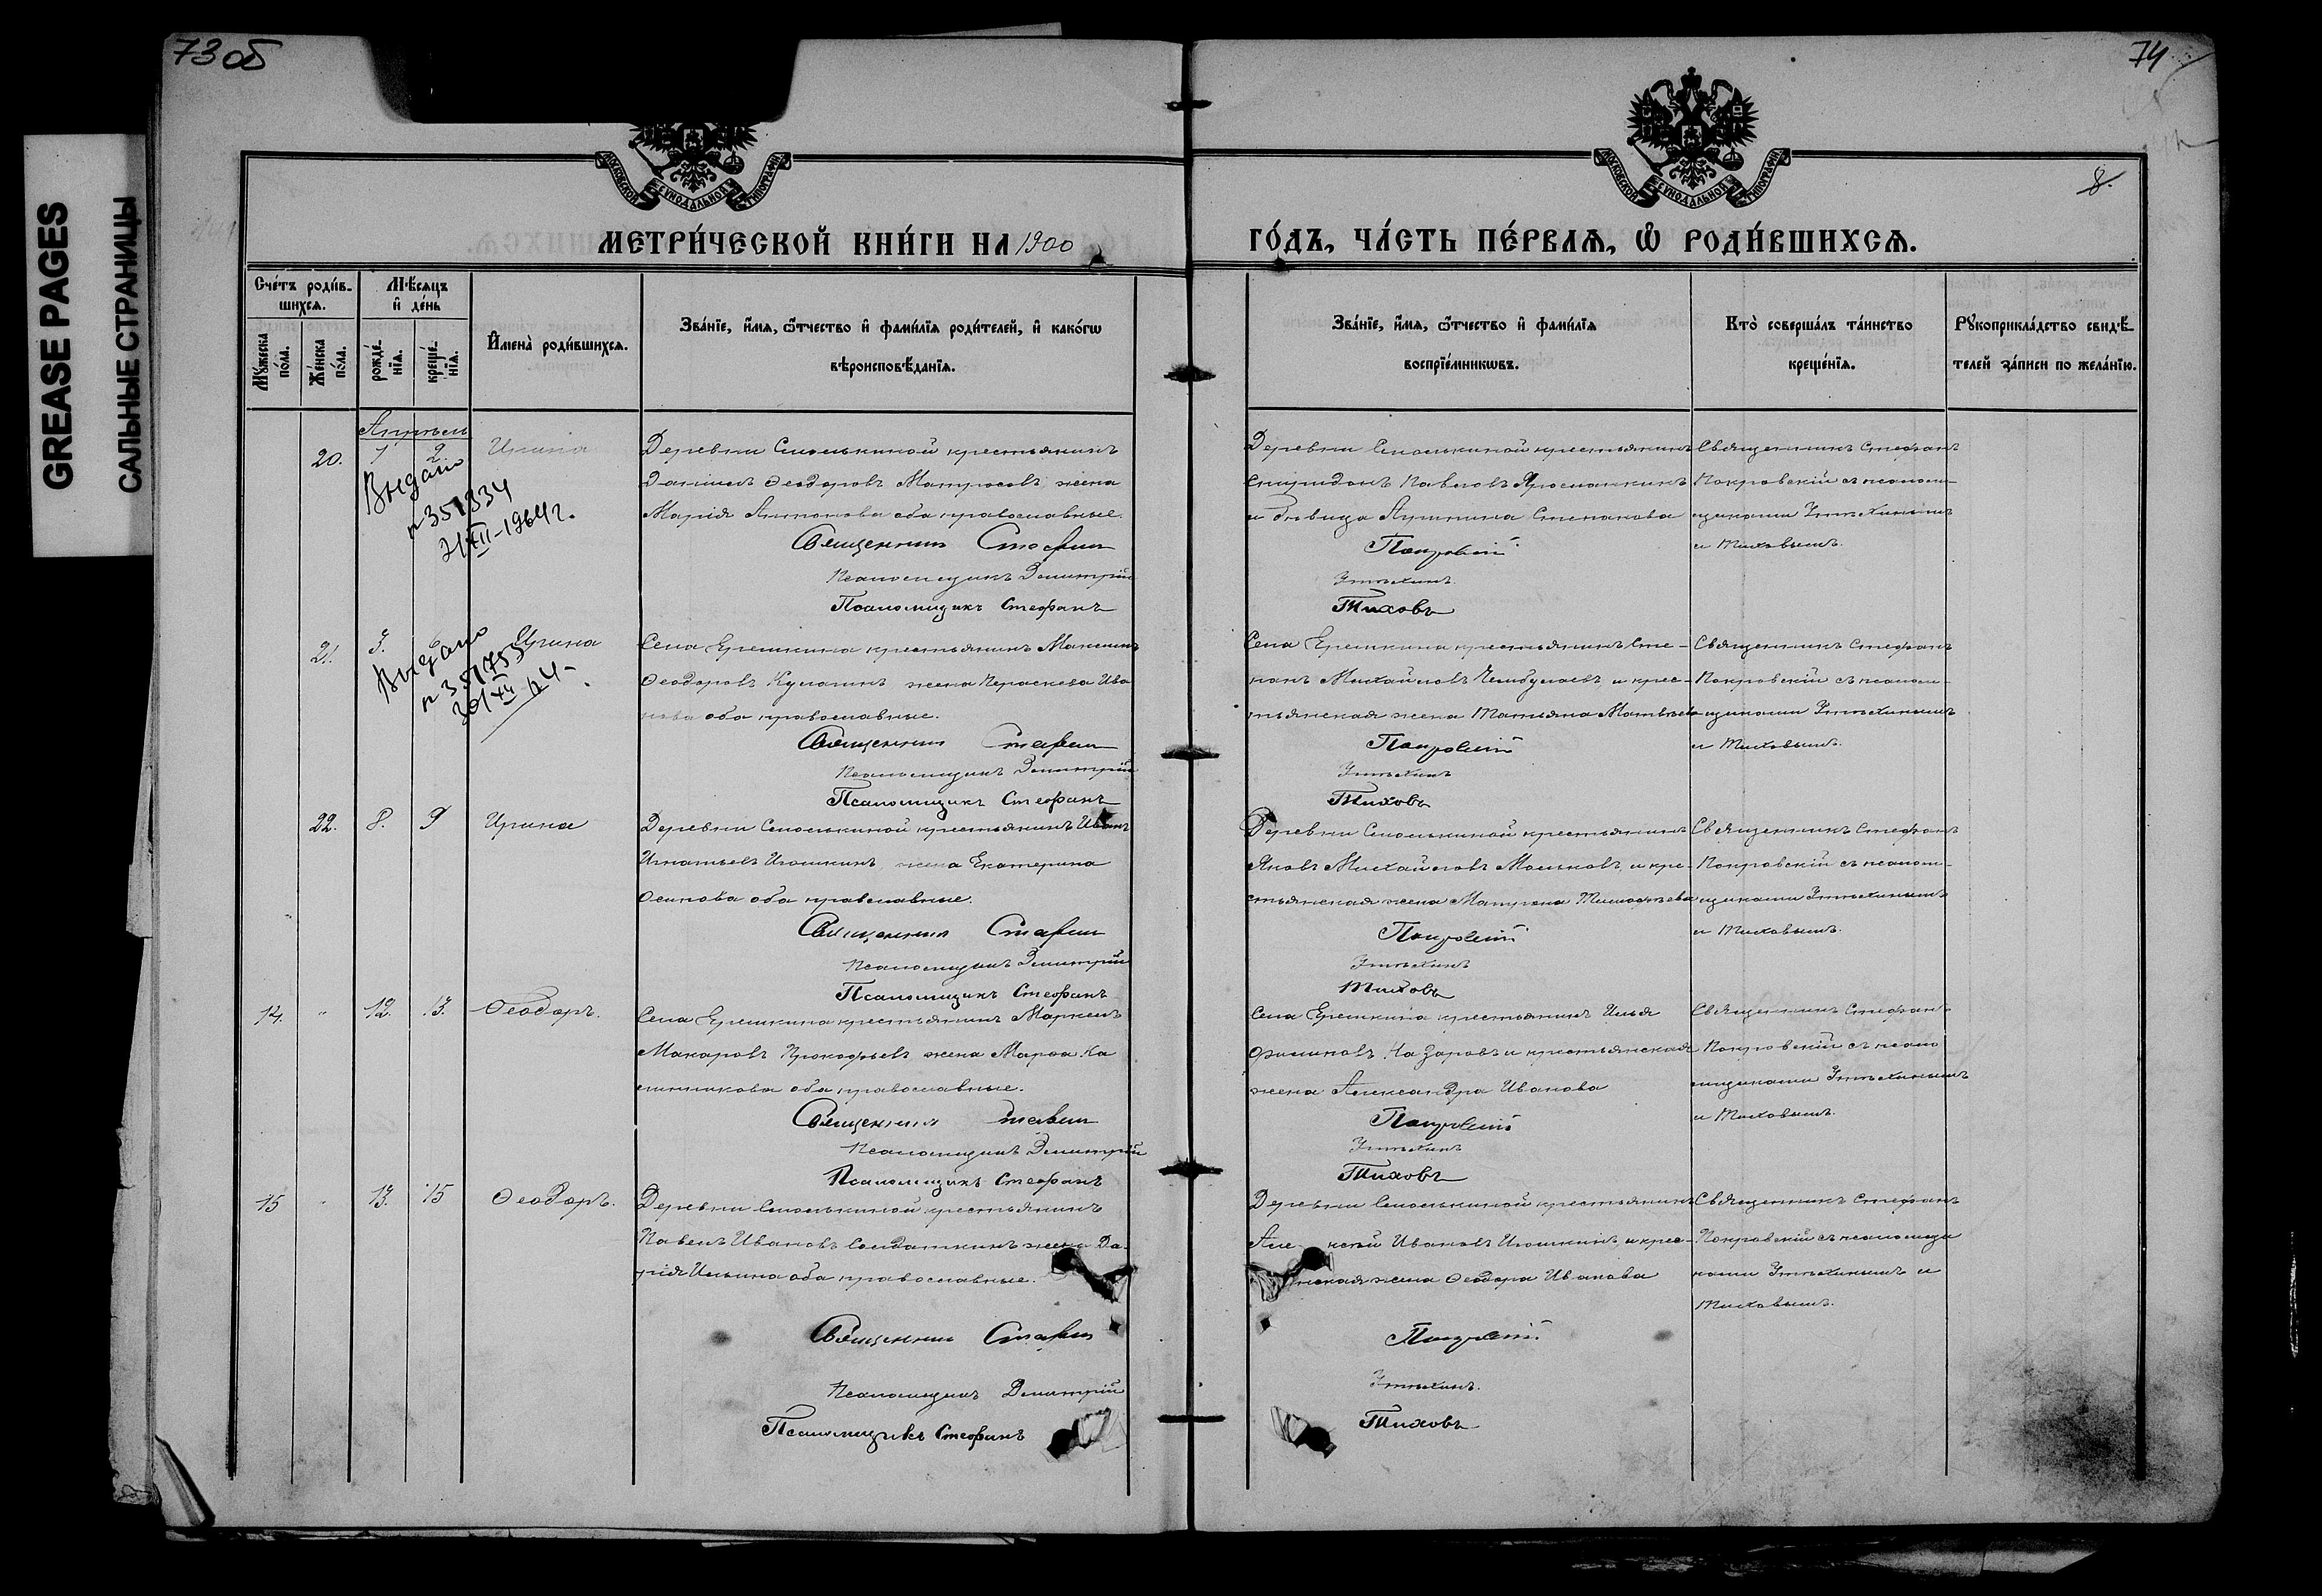 73 об
74
8.
GREASE PAGES
САЛЬНЫЕ СТРАНИЦЫ
МОСКОВСКОЙ СѴНОДАЛЬНОЙ ТИПОГРАФІИ
МОСКОВСКОЙ СѴНОДАЛЬНОЙ ТИПОГРАФІИ
МЕТРИ́ЧЕСКОЙ КНИ́ГИ НА 1900
ГО́ДЪ, ЧА́СТЬ ПЕ́РВАѦ, Ѡ҆ РОДИ́ВШИХСѦ.
Сче́тъ роди́в-
шихсѧ.
Мꙋ́жеска по́ла.
Же́нска по́ла.
Мѣ́сѧцъ
и҆ де́нь
рожде́-
нїѧ.
креще́-
нїѧ.
И҆мена̀ роди́вшихсѧ.
Зва́нїе, и҆́мѧ, ѻ҆́тчество и҆ фами́лїѧ роди́телей, и҆ како́гѡ
вѣроисповѣ́данїѧ.
Зва́нїе, и҆́мѧ, ѻ҆́тчество и҆ фами́лїѧ
воспрїе́мникѡвъ.
Кто̀ соверша́лъ та́инство
креще́нїѧ.
Рꙋкоприкла́дство свидѣ́-
телей за́писи по жела́нїю.
Апрѣль
20.
1
2.
Ирина
Выдано
n 351334
21/XII-1964г.
Деревни Смолькиной крестьянинъ
Даніилъ Ѳеодоровъ Матросовъ жена
Марія Антонова оба православные.
Священник Стефан
Псаломщикъ Димитрій
Псаломщикъ Стефанъ
Деревни Смолькиной крестьянинъ
Спиридонъ Павловъ Ярославкинъ
и дѣвица Агрипина Степанова
Покровский
Утѣхинъ.
Тиховъ
Священникъ Стефанъ
Покровскій съ псалом-
щиками Утѣхинымъ
и Тиховымъ.
21.
3.
Ирина
Выдано
Села Ерешкина крестьянинъ Максимъ
Ѳеодоровъ Кулагинъ жена Пераскева Ива
нова оба православные.
Священник Стефан
Псаломщикъ Димитрій
Псаломщикъ Стефанъ
Села Ерешкина крестьянинъ Сте-
панъ Михайловъ Чембулаевъ, и крес-
тьянская жена Татьяна Матвѣева
Покровский
Утѣхинъ
Тиховъ
Священникъ Стефанъ
Покровскій съ псалом-
щиками Утѣхинымъ
и Тиховымъ.
22.
8.
9
Ирина
Деревни Смолькиной крестьянинъ Иванъ
Игнатьевъ Игошкинъ жена Екатерина
Осипова оба православные.
Священник Стефан
Псаломщикъ Димитрій
Псаломщикъ Стефанъ
Деревни Смолькиной крестьянинъ
Яковъ Михайловъ Мольковъ, и кре-
стьянская жена Матрона Тимофѣева
Покровский
Утѣхинъ
Тиховъ
Священникъ Стефанъ
Покровскій съ псалом-
щиками Утѣхинымъ
и Тиховымъ.
14.
"
12.
13.
Ѳеодоръ.
Села Ерешкина крестьянинъ Маркелъ
Макаровъ Прокофьевъ жена Марѳа Ка
линникова оба православные.
Священник Стефан
Псаломщикъ Димитрій
Псаломщикъ Стефанъ
Села Ерешкина крестьянинъ Илья
Филиповъ Назаровъ и крестьянская
жена Александра Иванова
Покровский
Утѣхинъ
Тиховъ
Священникъ Стефанъ
Покровскій съ псало
мщиками Утѣхинымъ
и Тиховымъ.
15
13.
15
Ѳеодоръ.
Деревни Смолькиной крестьянинъ
Павелъ Ивановъ Солдаткинъ жена Да-
рія Ильина оба православные.
Священник Стефан
Псаломщикъ Димитрій
Псаломщикъ Стефанъ
Деревни Смолькиной крестьянинъ
Але ксѣй Ивановъ Игошкинъ, и крес-
нская жена Ѳеодора Иванова
Покровский.
Утѣхинъ.
Тиховъ
Священникъ Стефанъ
Покровскій съ псаломщи
ками Утѣхинымъ и
Тиховымъ.